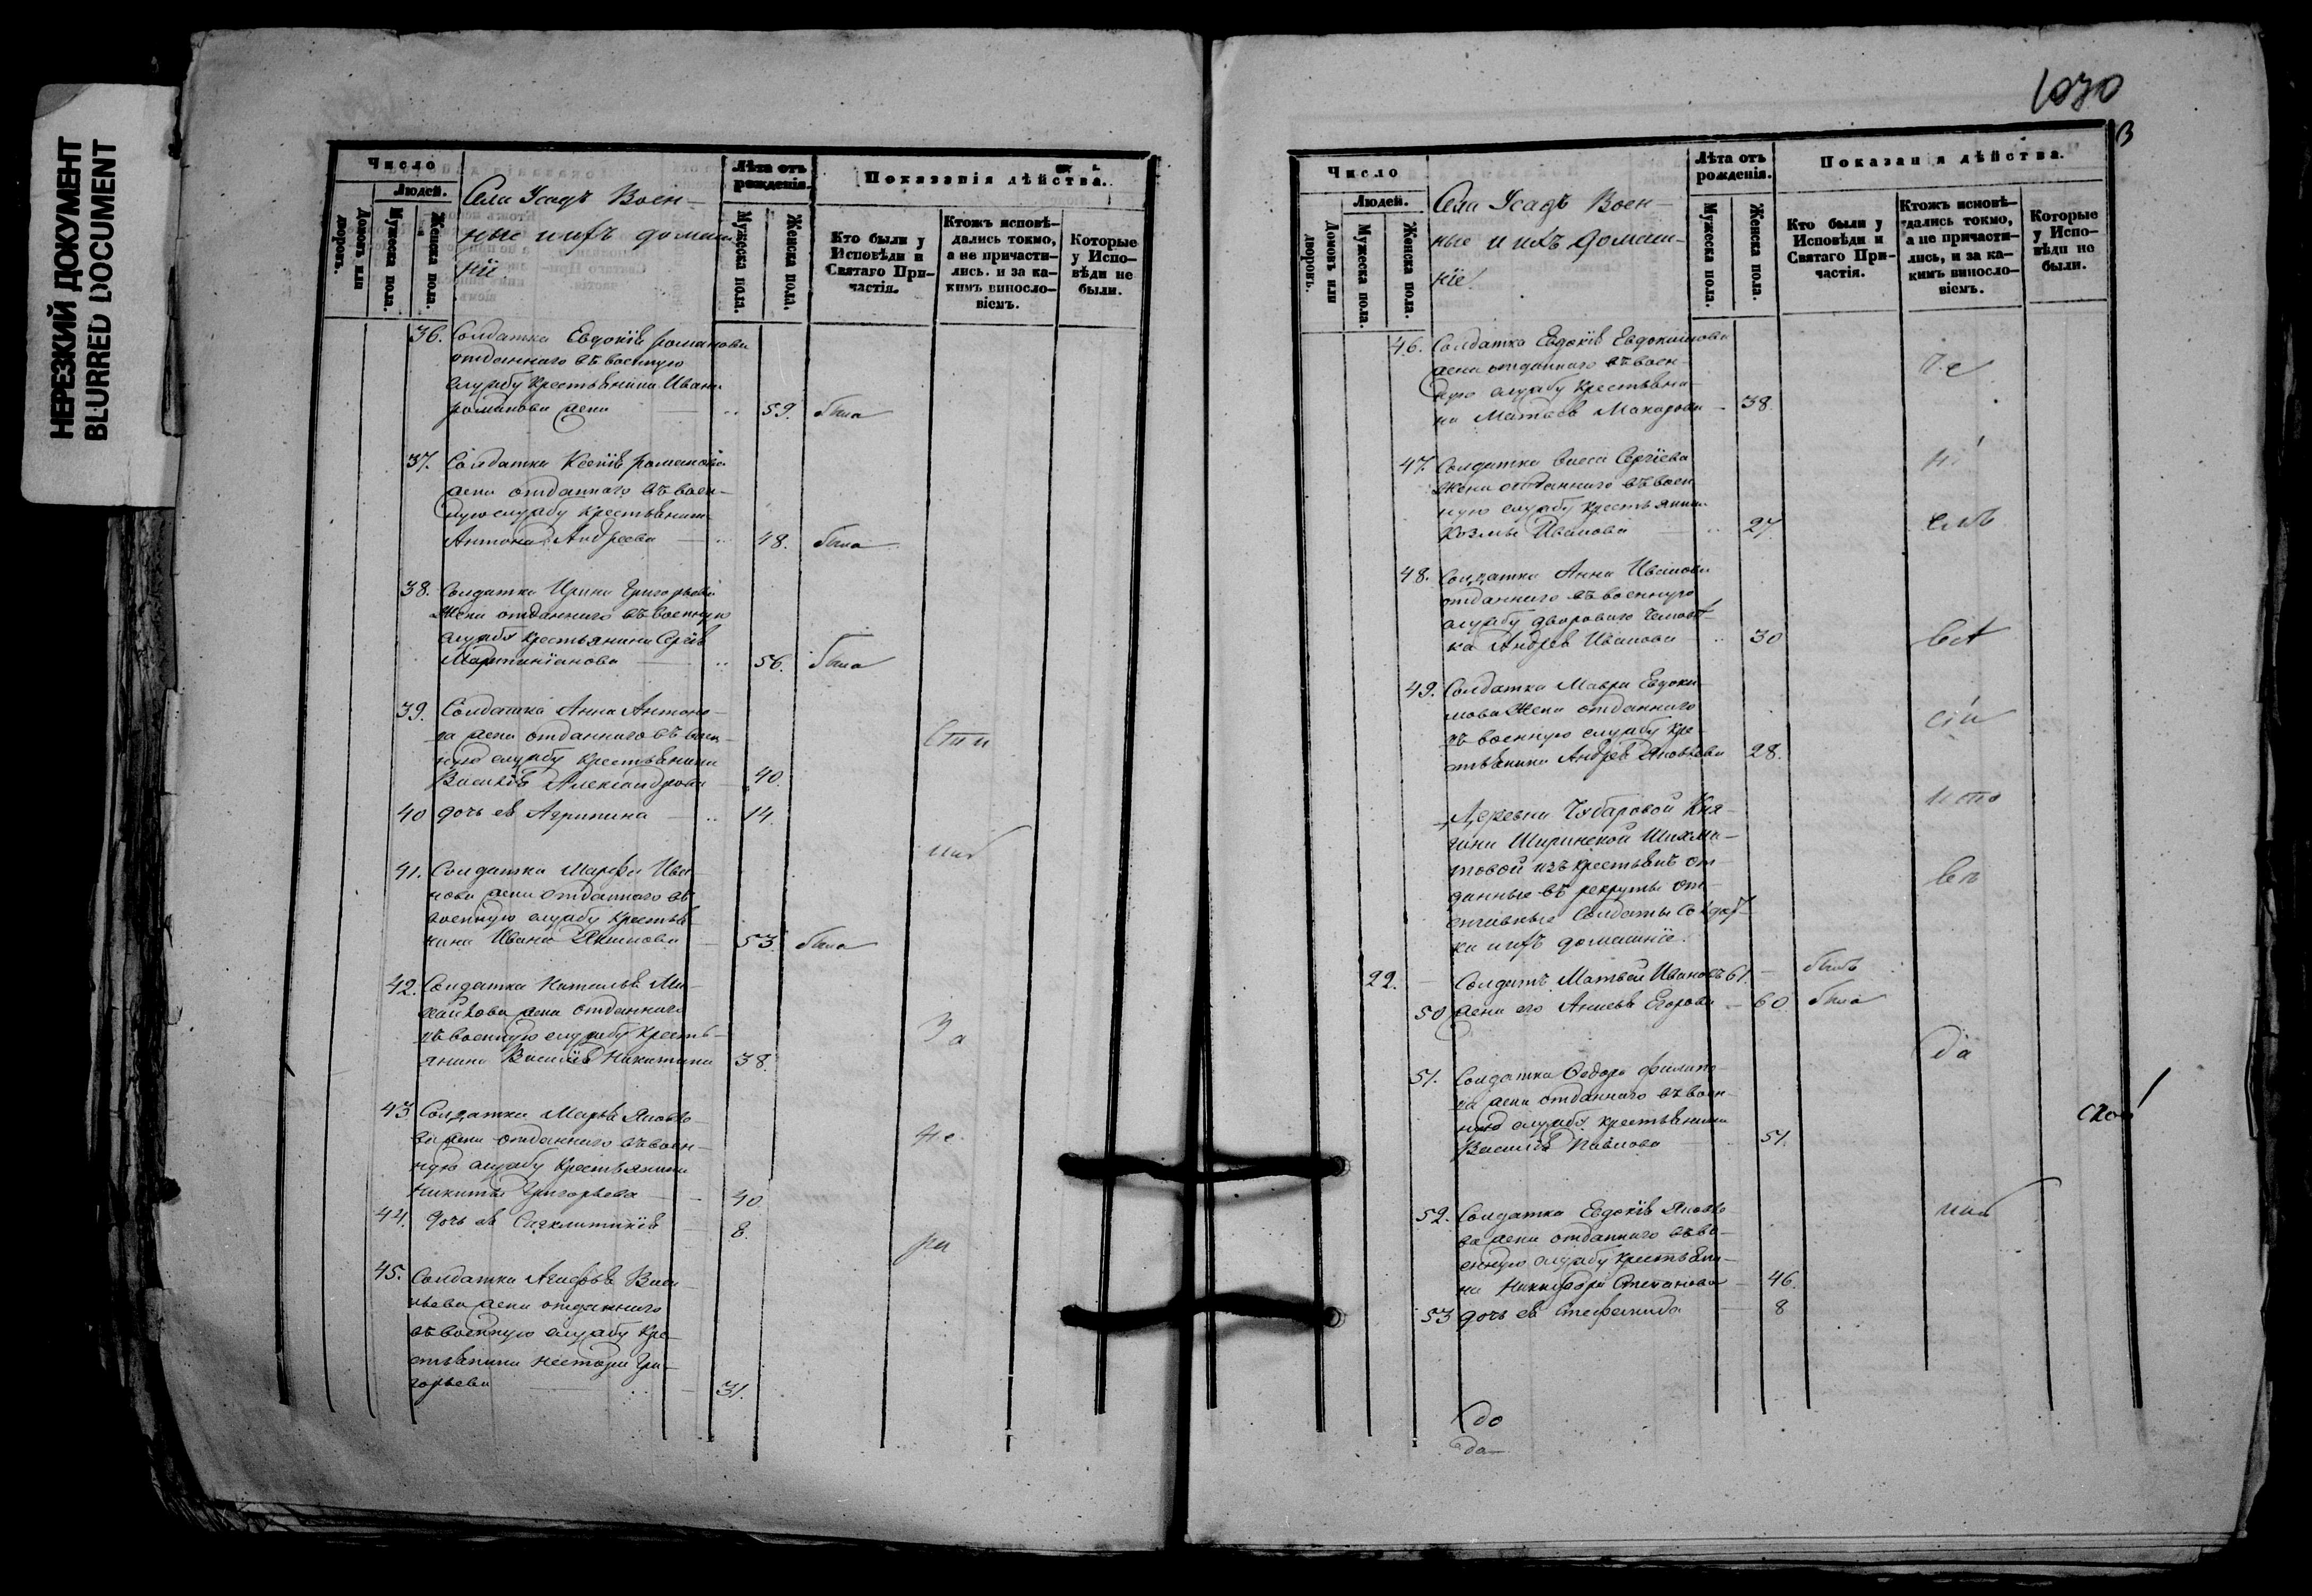 НЕРЕЗКИЙ ДОКУМЕНТ
BLURRED DOCUMENT
Число
Людей.
Домовъ или дворовъ.
Мужеска пола.
Женска пола.
Села Усадъ Воен-
ные и ихъ домаш-
ніе.
Лѣта отъ рожденія.
Мужеска пола.
Женска пола.
Показанія дѣйства.
Кто были у
Исповѣди и
Святаго При-
частія.
Ктожъ исповѣ-
дались токмо,
а не причасти-
лись. и за ка-
кимъ виносло-
віемъ.
Которые
у Испо-
вѣди не
были.
36. Солдатка Евдокія Романова
отданнаго въ военную
службу крестьянина Ивана
Романова жена 59. была
37. Солдатка Ксенія Романова
жена отданнаго въ воен-
ную службу крестьянина
Антона Андреева 48. была
38. Солдатка Ирина Григорьева
жена отданнаго въ военную
службу крестьянина Сергія
Мартиніанова 56. была
39. Солдатка Анна Антоно-
ва жена отданнаго въ воен-
ную службу крестьянина
Василія Александрова 40.
40 дочь ея Агрипина 14.
41. Солдатка Марфа Ива-
нова жена отданнаго въ
военную службу крестья-
нина Ивана Якимова 53. была
42. Солдатка Наталья Ми-
хайлова жена отданнаго
въ военную службу кресть-
янина Василія Никитина 38.
За
43 Солдатка Марья Яковле-
ва жена отданнаго въ воен-
ную службу крестьянина
Никиты Григорьева 40
не
44. дочь ея Сигклитикія 8.
45. Солдатка Агафья Васи-
льева жена отданнаго
въ военную службу кре-
стьянина Нестора Гри-
горьева 31.
1070
Число
Людей.
Домовъ или дворовъ.
Мужеска пола.
Женска пола.
Села Усадъ Воен-
ные и ихъ домаш-
ніе.
Лѣта отъ рожденія.
Мужеска пола.
Женска пола.
Показанія дѣйства.
Кто были у
Исповѣди и
Святаго При-
частія.
Ктожъ исповѣ-
дались токмо,
а не причасти-
лись, и за ка-
кимъ виносло-
віемъ.
Которые
у Испо-
вѣди не
были.
46. Солдатка Евдокія Евдокимова
жена отданнаго въ воен-
ную службу крестьяни-
на Матвея Макарова 38.
47. Солдатка Сергіева
жена отданнаго въ воен
ную службу крестьянина
Козмы Иванова 27.
48. Солдатка Анна Иванова
отданнаго въ военную
службу двороваго человѣ-
ка Андрея Иванова 30
49. Солдатка Мавра Евдоки-
мова жена отданнаго
въ военную службу кре-
стьянина Андрея Яковлева 28.
Деревни Чубаровой Кня-
гини Ширинской Шихма-
товой изъ крестьянъ от-
данные въ рекруты от-
ставные Солдаты Солдат-
ки и ихъ домашніе.
22. Солдатъ Матвей Ивановъ 61. былъ
50 жена его Анисья Егорова 60 была
51. Солдатка Федора Филипо-
ва жена отданнаго въ воен-
ную службу крестьянина
Василія Павлова 51.
52. Солдатка Евдокія Яковле-
ва жена отданнаго въ во-
енную службу крестьяни-
на Никифора Степанова 46.
53 дочь ея Стефанида 8